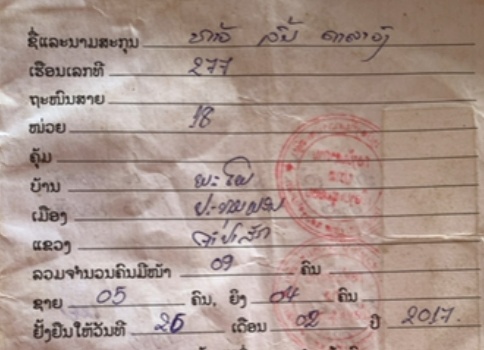 ຊື່ແລະນາມສະກຸນ ທ້າວ
ເຮືອນເລກທີ 277
ຖະໜົນສາຍ
ໜ່ວຍ 18
ຄຸ້ມ
ບ້ານ ພະໂພ
ເມືອງ ປະທຸມພອນ
ແຂວງ ຈຳປາສັກ
ລວມຈຳນວນຄົນມີໜ້າ 09 ຄົນ
ຊາຍ 05 ຄົນ, ຍິງ 04 ຄົນ
ຢັ້ງຢືນໃຫ້ວັນທີ 26 ເດືອນ 02 ປີ 2017.